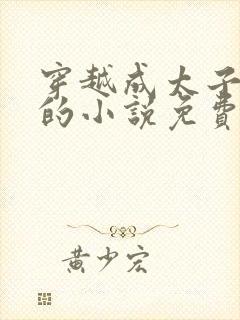 穿越成太子
的小説免費
黄少宏